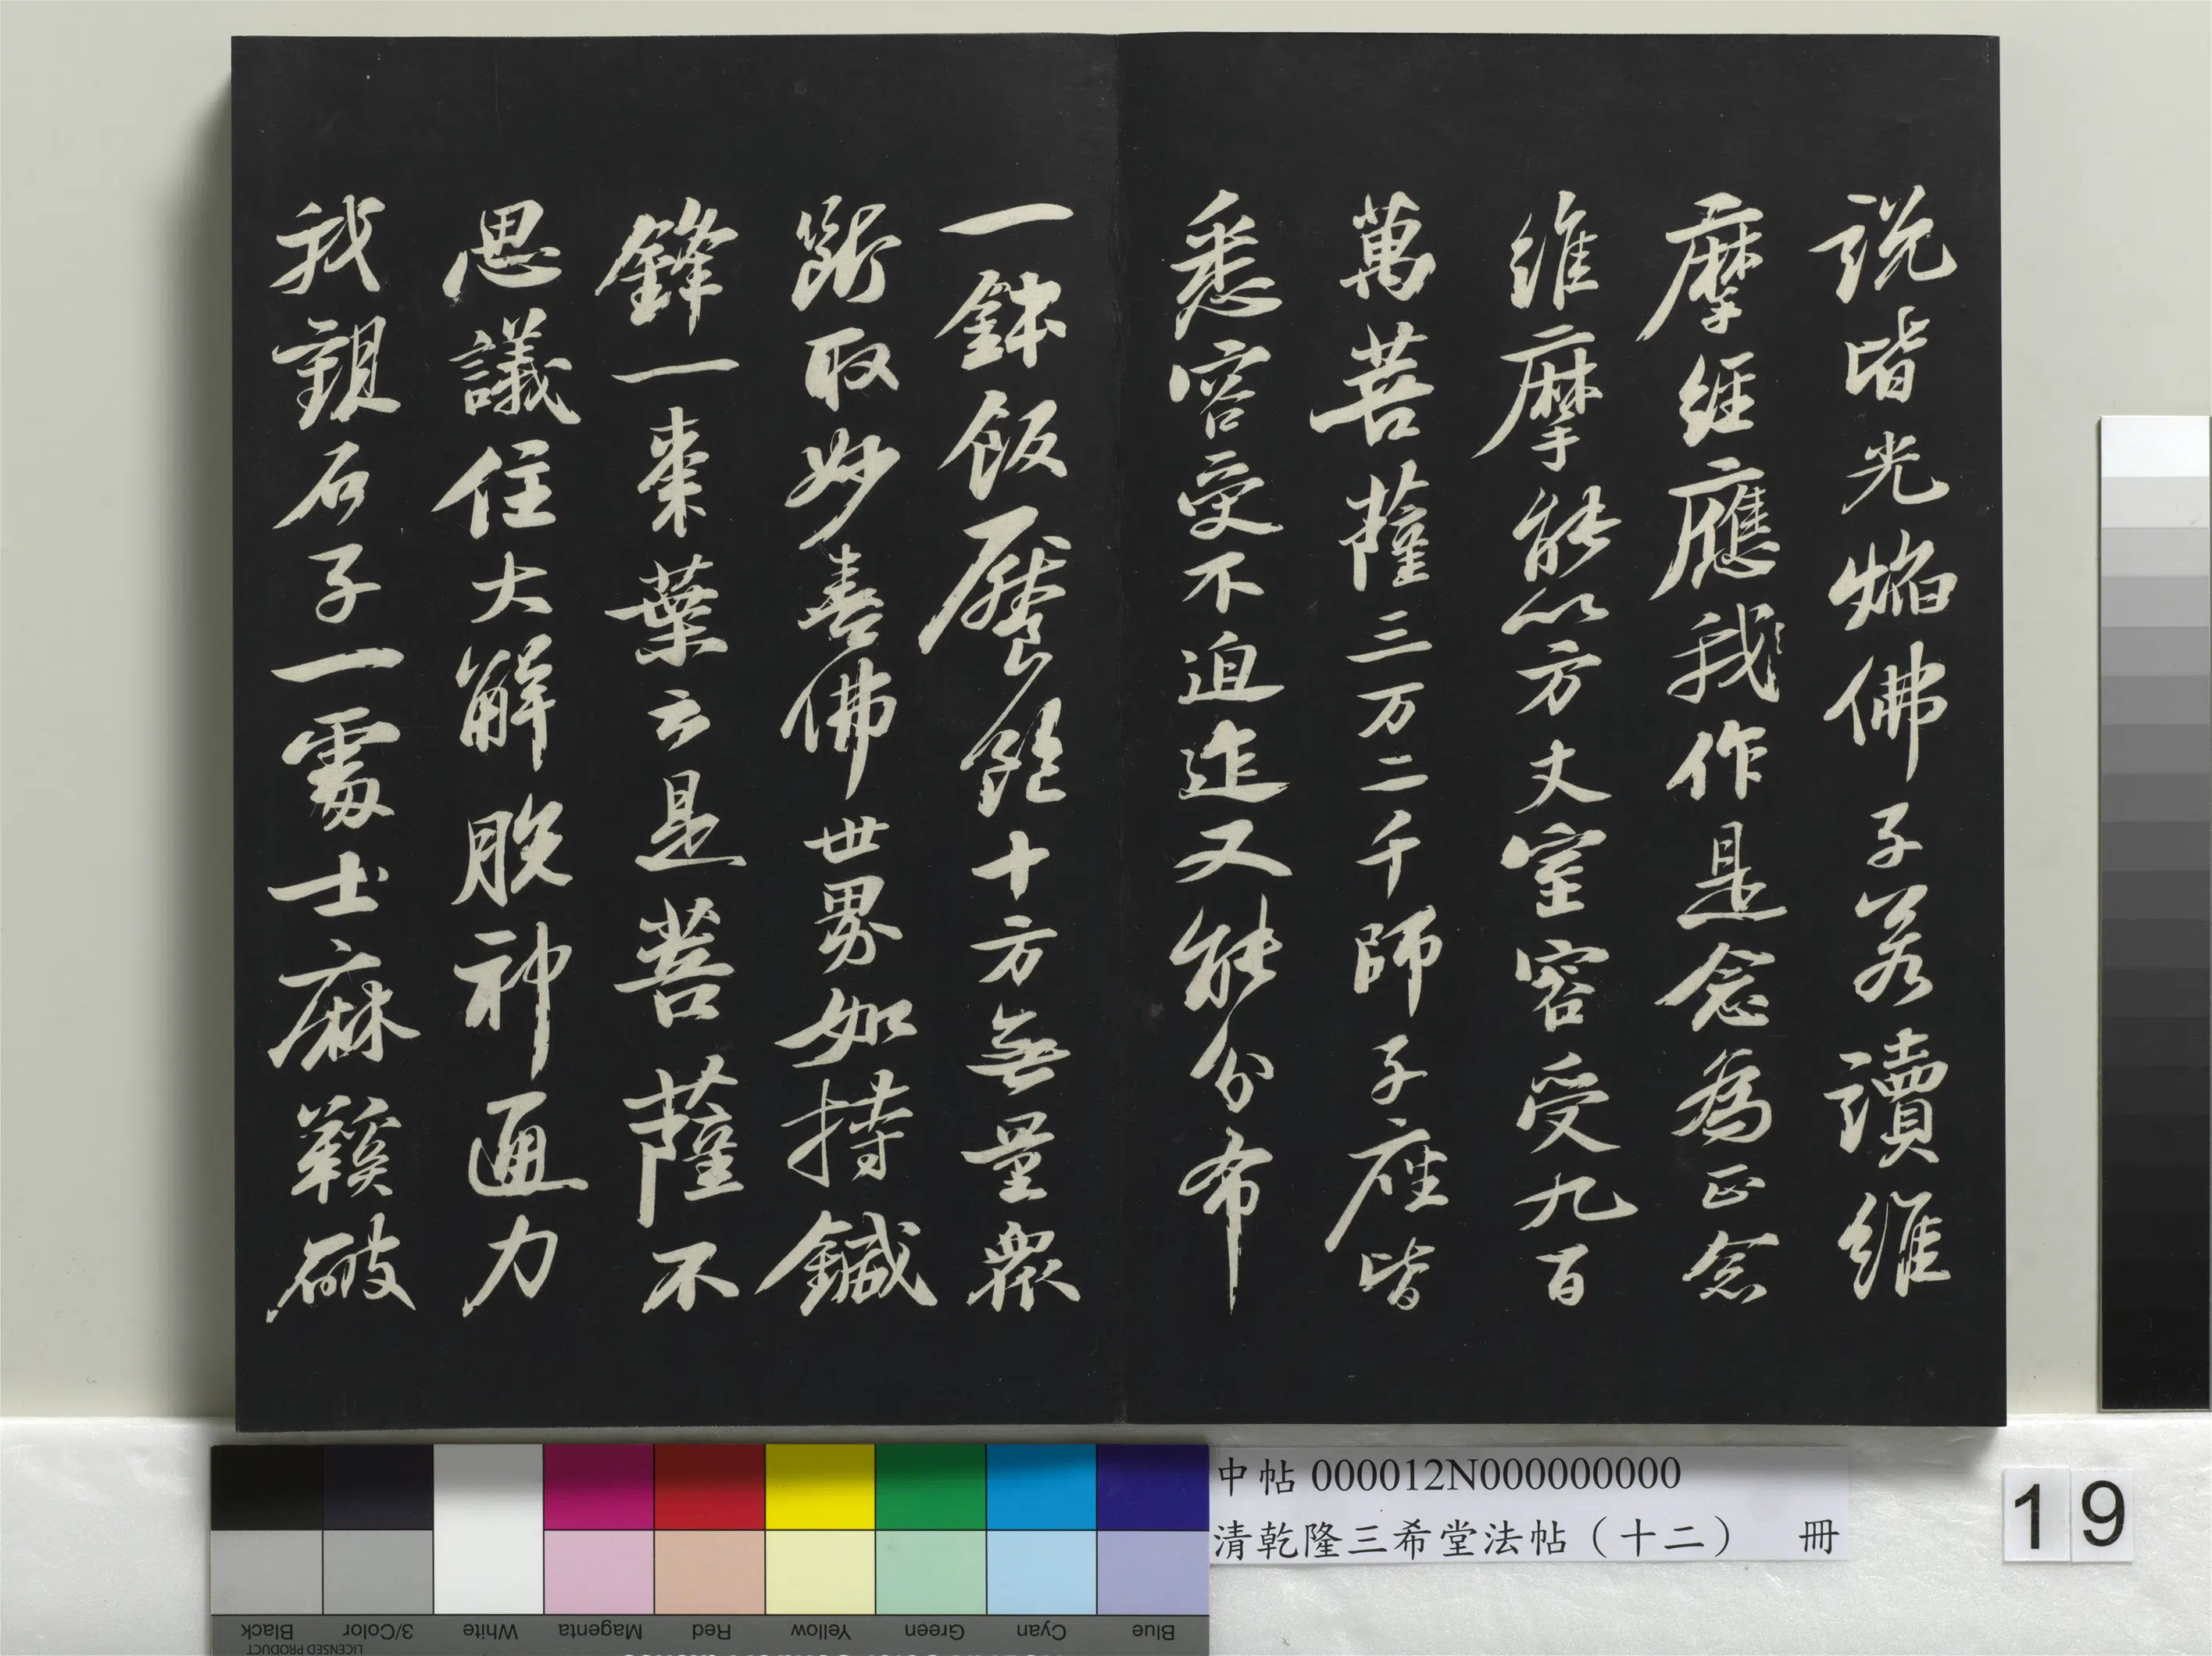 說皆光焰佛子若讀維
摩經應我作是念為正念
維摩能以方丈室容受九百
萬菩薩三万二千師子座皆
悉容受不迫迮又能分布
一鉢飯饜飽十方無量眾
斷取妙喜佛世界如持鍼
鋒一棗葉云是菩薩不
思議住大解脫神通力
我觀石子一處士麻鞵破
中帖 000012N000000000
清乾隆三希堂法帖（十二） 冊
19
Blue Cyan Green Yellow Red Magenta White 3/Color Black
LICENSED PRODUCT